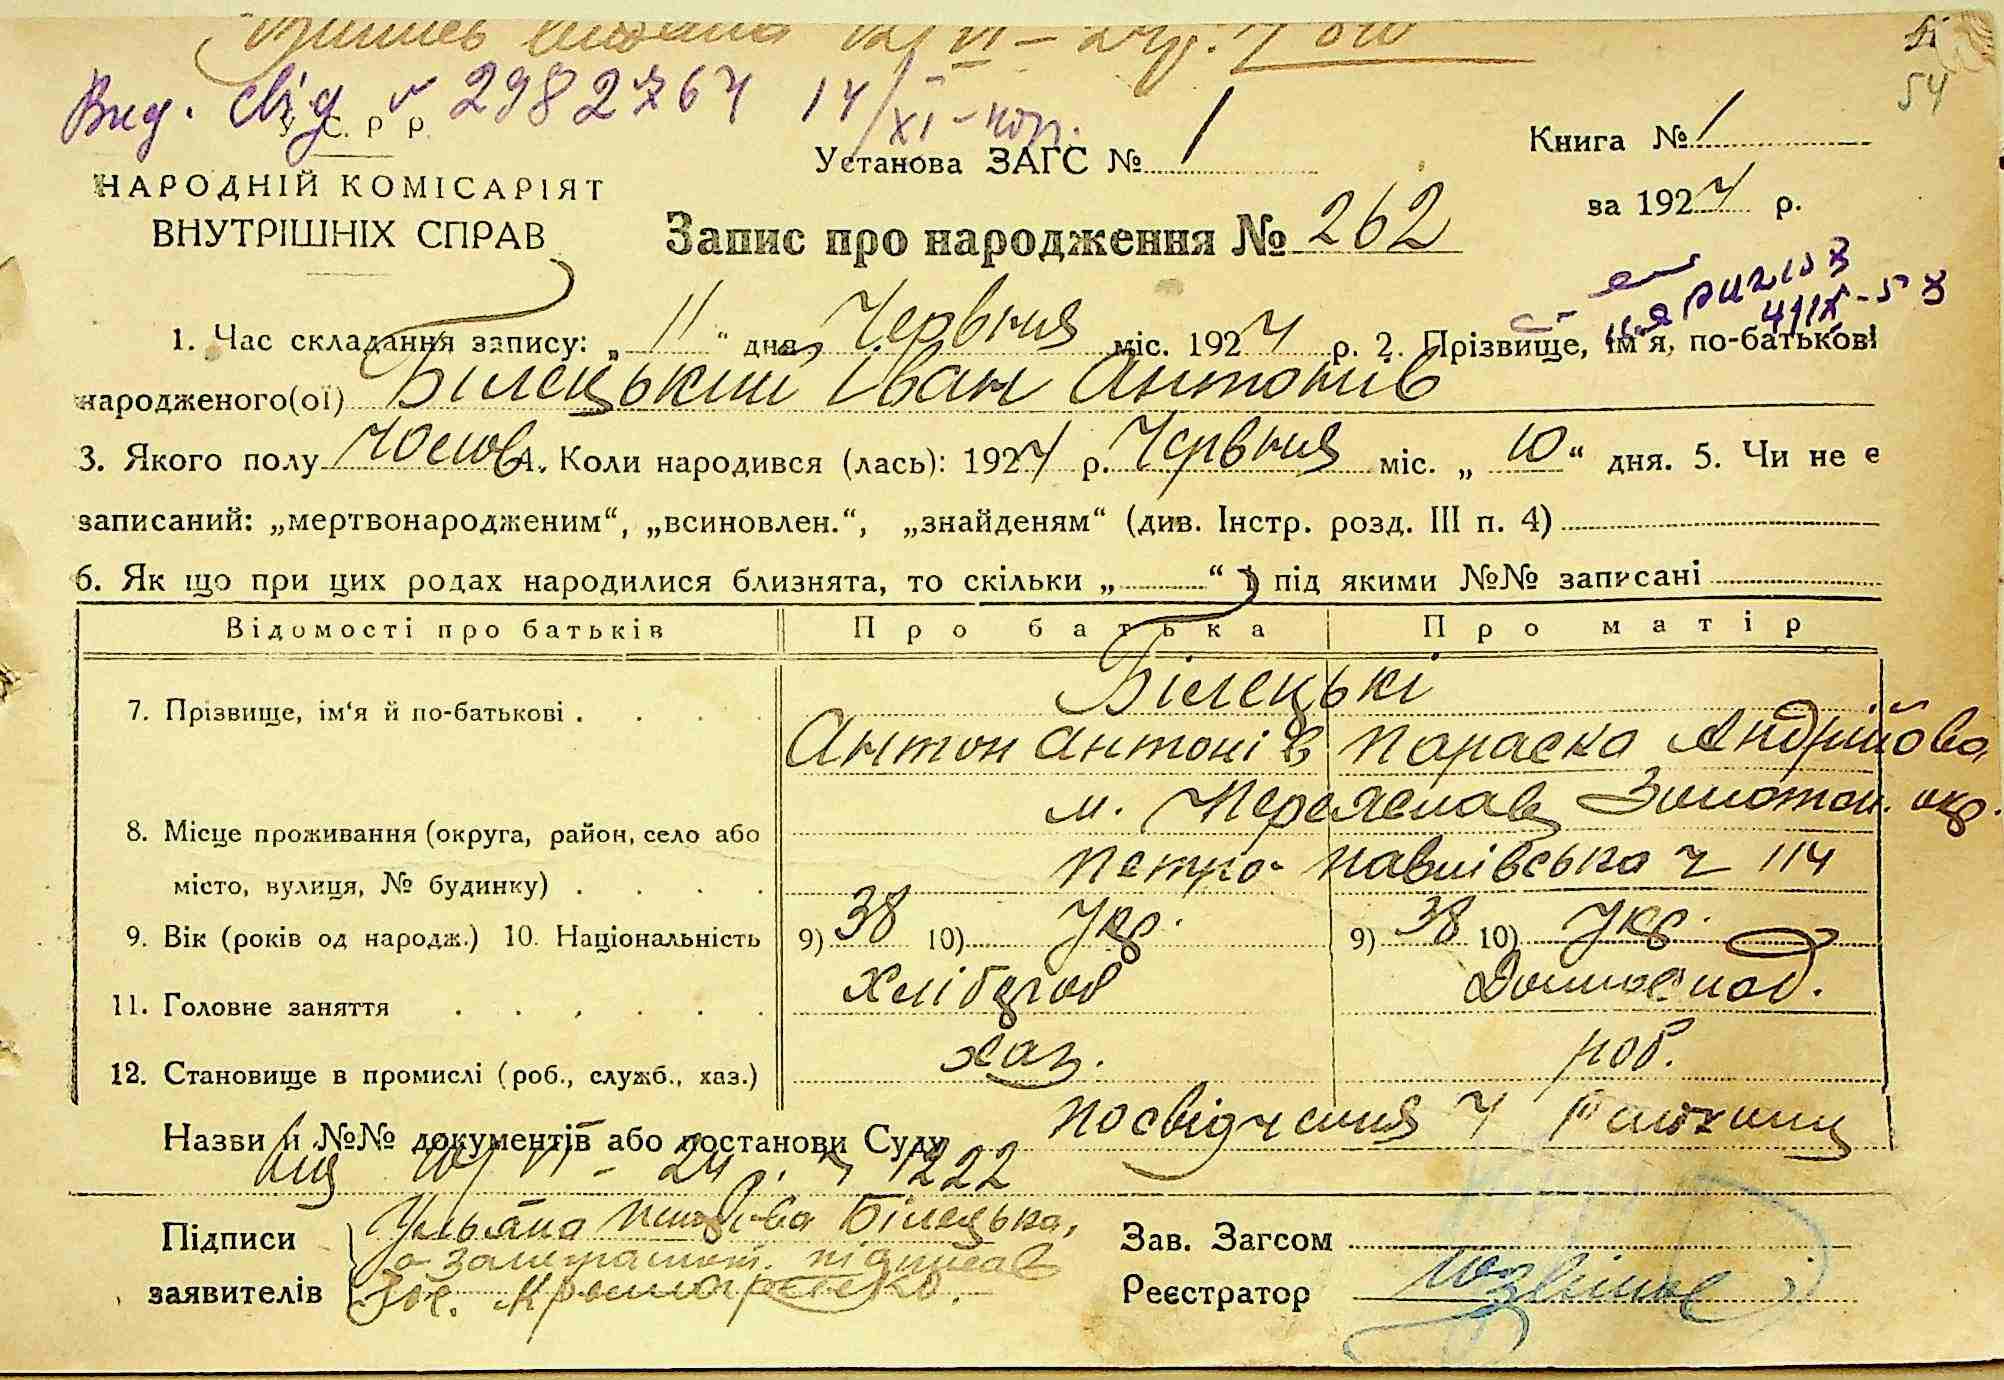 54
Вид. свід № 2982764 14/XI-
У. С. Р. Р.
НАРОДНІЙ КОМІСАРІЯТ
ВНУТРІШНІХ СПРАВ
Установа ЗАГС № 1
Книга № 1
за 1924 р.
Запис про народження № 262
1. Час складання запису: „ 11 “ дня Червня міс. 1924 р. 2. Прізвище, ім'я, по-батькові
народженого(ої) Білецький Іван Антонів
3. Якого полу Чолов. 4. Коли народився (лась): 1924 р. Червня міс. „ 10 “ дня. 5. Чи не є
записаний: „мертвонародженим“, „всиновлен.“, „знайденям“ (див. Інстр. розд. III п. 4)
6. Як що при цих родах народилися близнята, то скільки „ “ і під якими №№ записані
Відомості про батьків Про батька Про матір
7. Прізвище, ім'я й по-батькові . . . . Білецькі
Антон Антонів Параска Андрійова
8. Місце проживання (округа, район, село або м. Переяслав Золотон. окр.
місто, вулиця, № будинку) . . . . Петро-Павлівська 114
9. Вік (років од народж.) 10. Національність 9) 38 10) Укр. 9) 38 10) Укр.
11. Головне заняття . . . . . . Хлібороб Домогспод.
12. Становище в промислі (роб., служб., хаз.) хаз. роб.
Назви й №№ документів або постанови Суду Посвідчення
1222
Підписи Ульяна Білецька,
а за неграмотн. підписав
заявителів
Зав. Загсом
Реєстратор